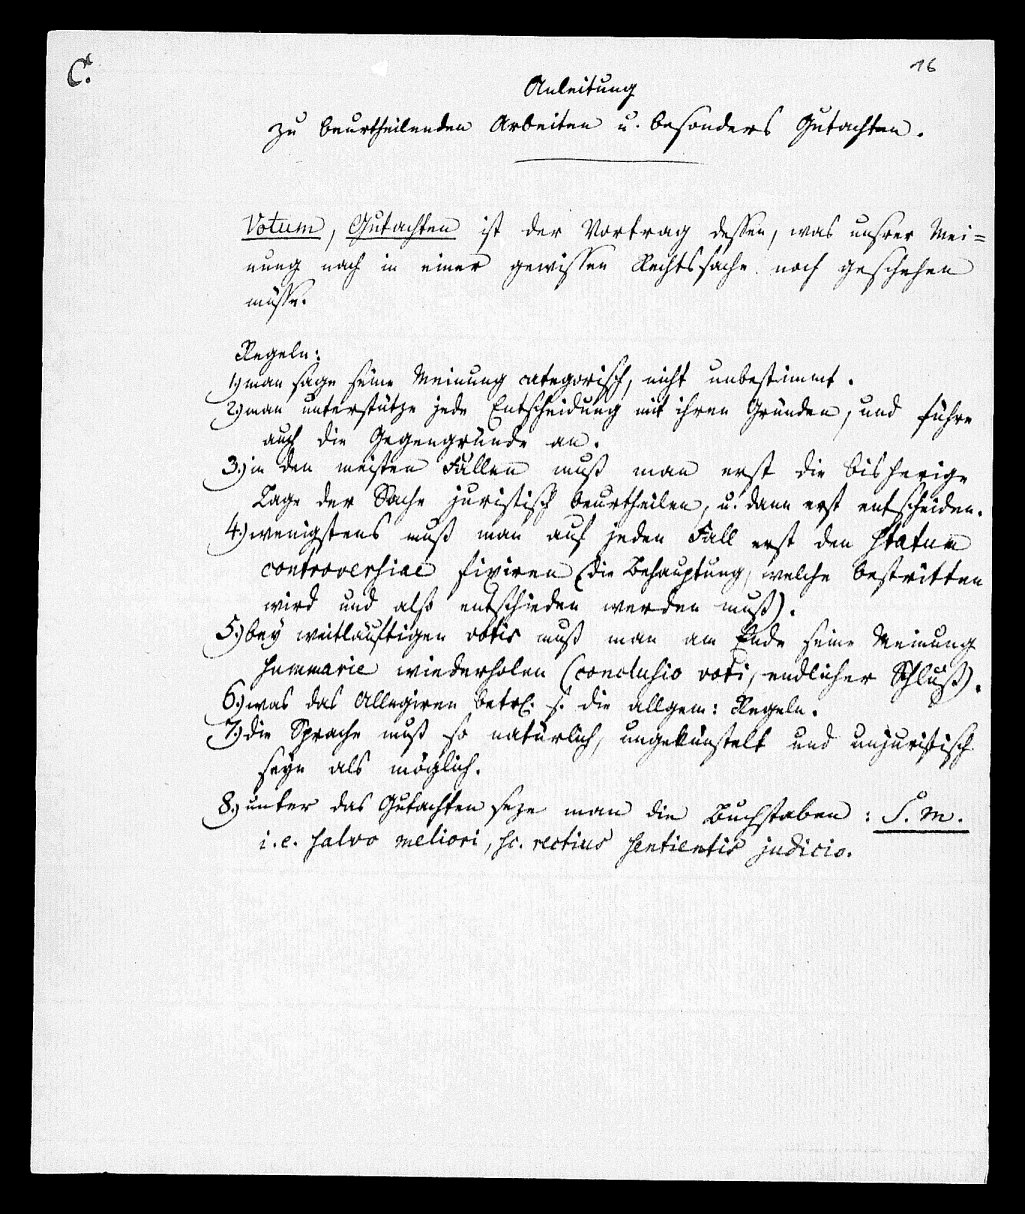 C.
16
Anleitung
zu beurtheilenden Arbeiten u. besonders Gutachten.
Votum, Gutachten ist der Vortrag dessen, was unsrer Mei=
nung nach in einer gewissen Rechtssache noch geschehen
müsse.
Regeln:
1.) man sage seine Meinung categorisch, nicht unbestimmt.
2.) man unterstütze jede Entscheidung mit ihren Gründen, und führe
auch die Gegengründe an.
3.) in den meisten Fällen muß man erst die bisherige
Lage der Sache juristisch beurtheilen, u. dann erst entscheiden.
4.) wenigstens muß man auf jeden Fall erst den statum
controversiae fixiren (die Behauptung, welche bestritten
wird und also entschieden werden muß).
5.) bey weitläuftigen votis muß man am Ende seine Meinung
summarie wiederholen (conclusio voti, endlicher Schluß).
6.) was das Allegiren betrf. s. die allgem: Regeln.
7.) die Sprache muß so natürlich, ungekünstelt und unjuristisch
seyn als möglich.
8.) unter das Gutachten seze man die Buchstaben: S. m.
i. e. salvo meliori, sc. rectius sentientis judicio.